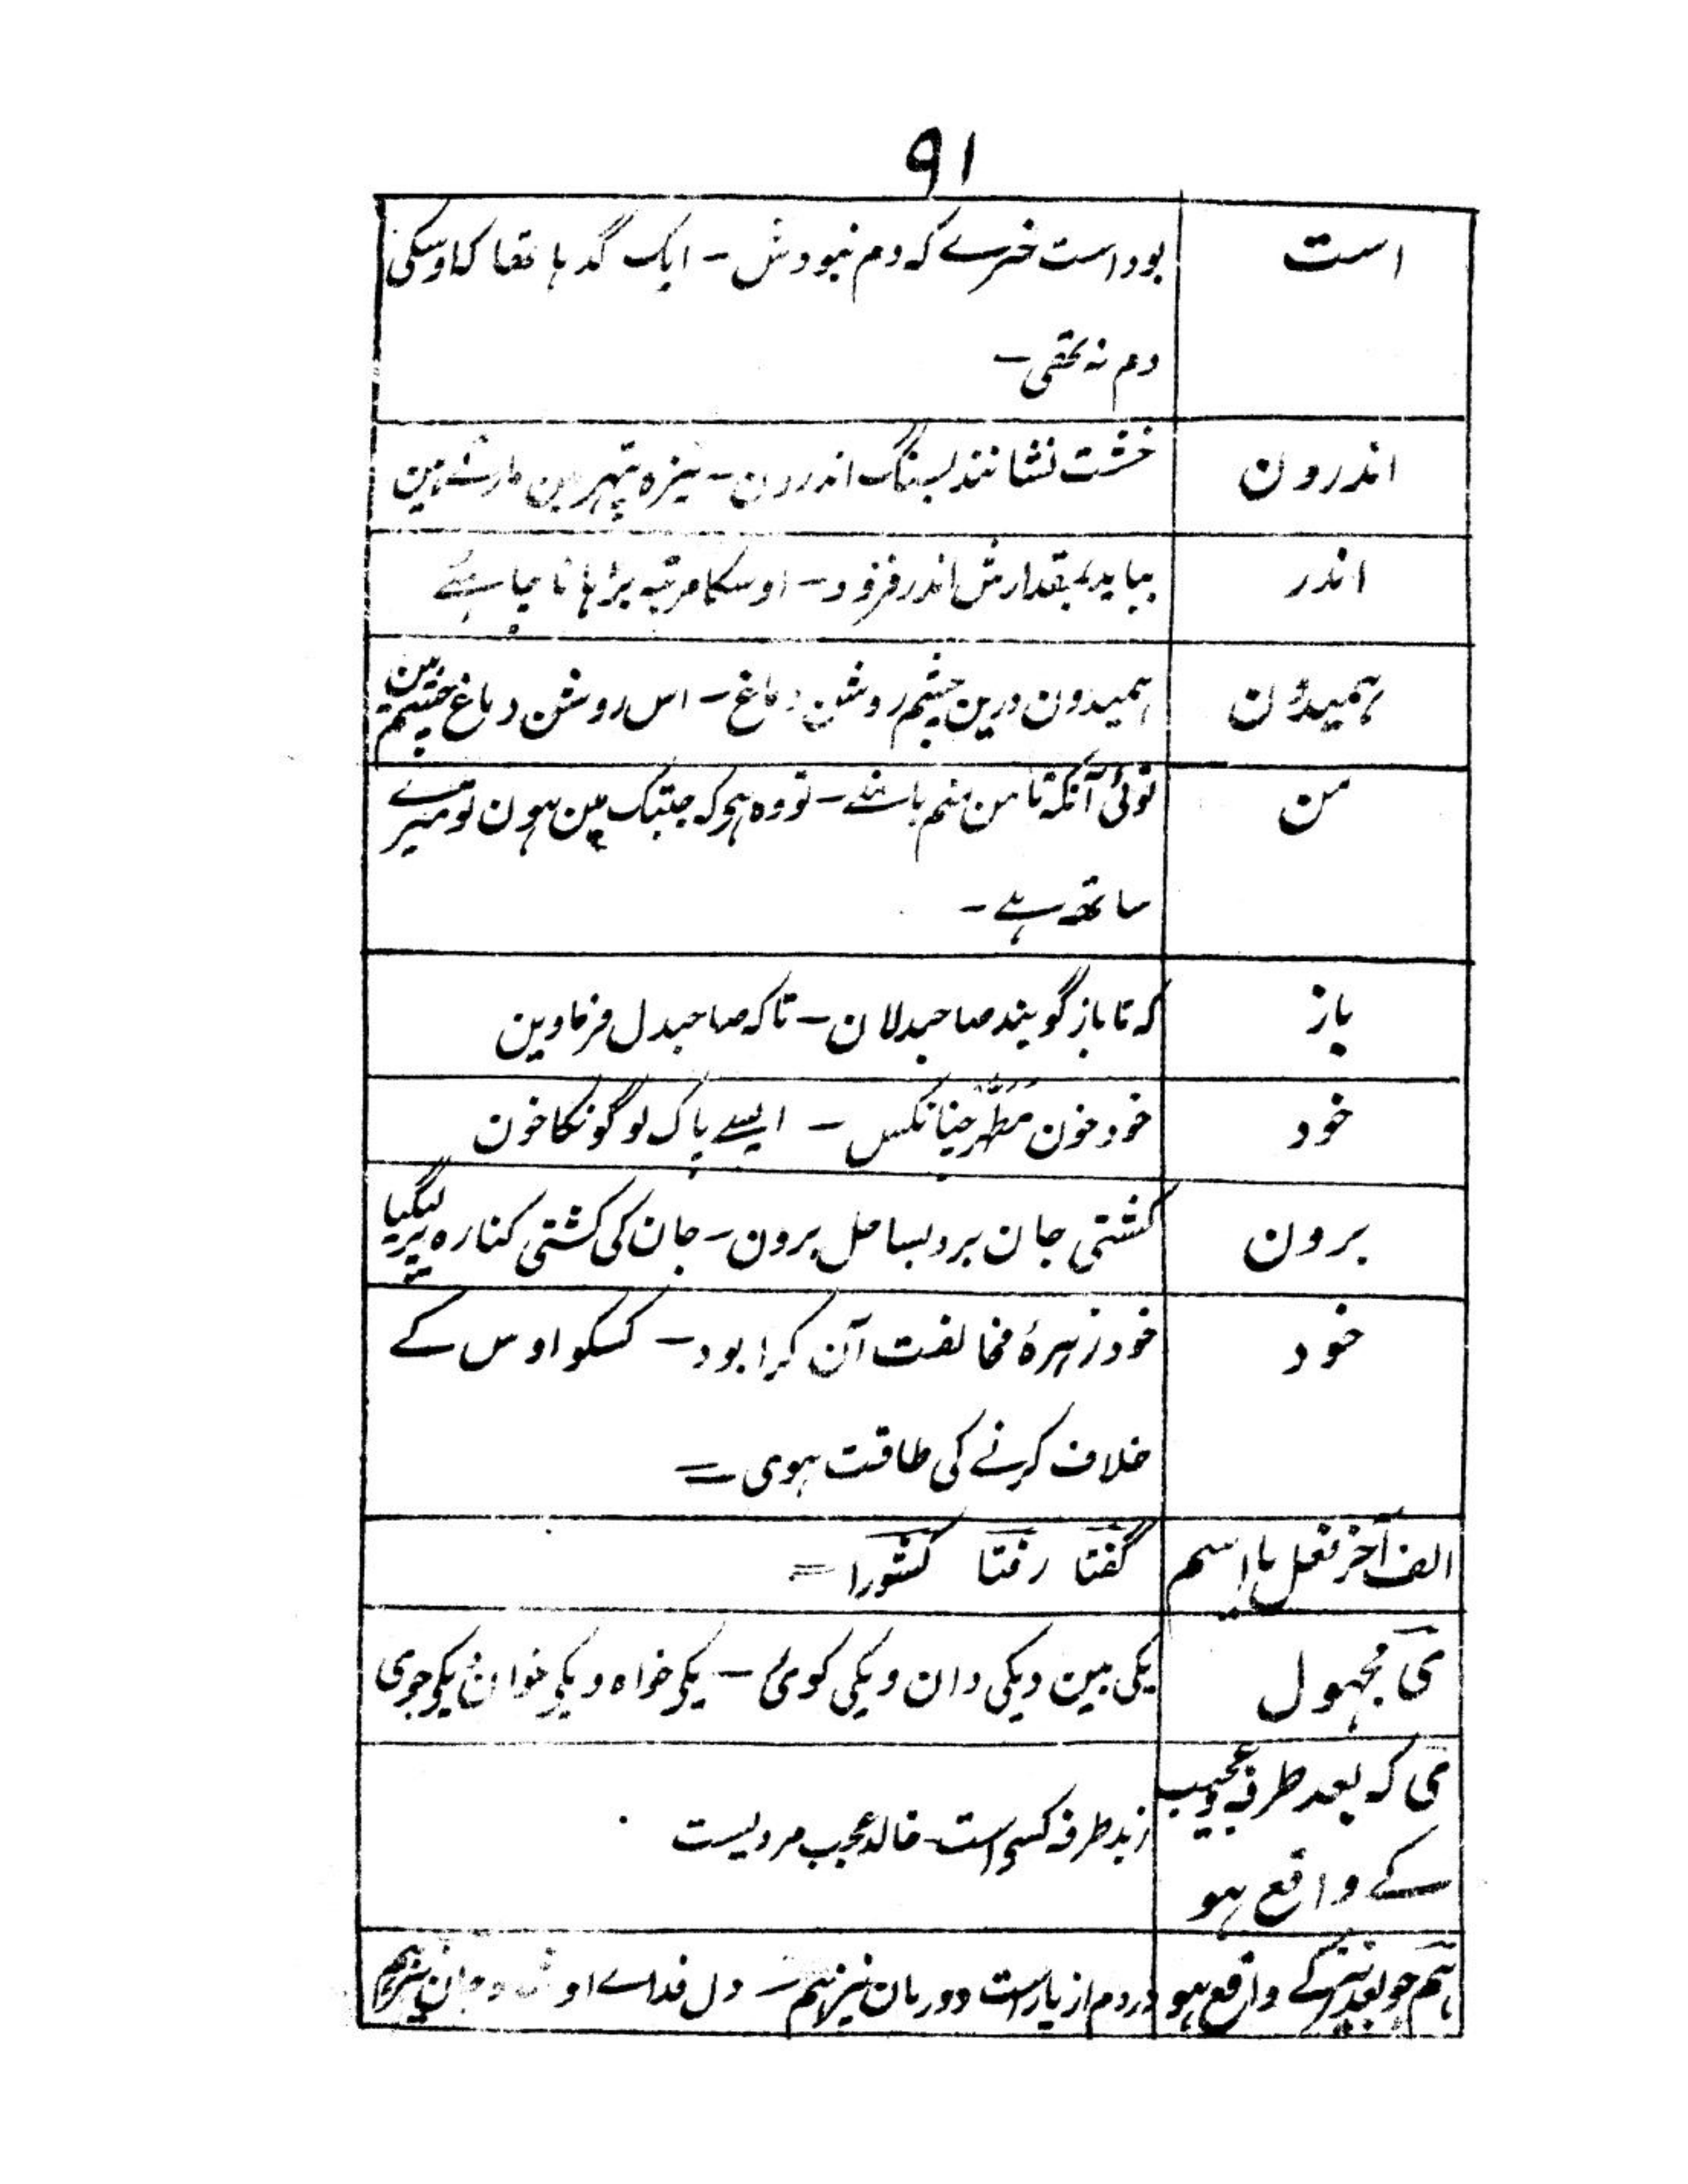 ۹۱
است	بوداست خرے کہ دم نبودش ـ ایک گدہا تھا کہ اوسکی
دم نہ تھی ـ
اندرون	خشت نشانند بسنگ اندرون ـ نیزہ پتہر مین مارتے ہین
اندر	بباید بمقدارش اندر فزود ـ اوسکا مرتبہ بڑہانا چاہئے
ہمیدون	ہمیدون درین چشم روشن دماغ ـ اس روشن دماغ چشم مین
من	توئی آنکہ تا من منم با منے ـ تو وہ ہے کہ جبتک مین ہون تو میرے
ساتھ ہے ـ
باز	کہ تا باز گویند صاحبدلان ـ تاکہ صاحبدل فرماوین
خود	خود خون مطہر چنانکس ـ ایسے پاک لوگونکا خون
برون	کشتی جان برد بساحل برون ـ جان کی کشتی کنارہ پر لیگیا
خود	خود زہرۂ مخالفت آن کرا بود ـ کسکو اوس کے
خلاف کرنے کی طاقت ہوی =
الف آخر فعل یا اسم	گفتا رفتا کشورا =
ی مجہول	یکی بین و یکی دان و یکی گوئی ـ یکی خواہ و یکی خوان و یکی جوی
ی کہ بعد طرفہ و عجیب
زید طرفہ کسی است ـ خالد عجب مردیست
کے واقع ہو
ہم جو بعد نیز کے واقع ہو	دردم از یارست و درمان نیز ہم ـ دل فداے او شد و جان نیز ہم